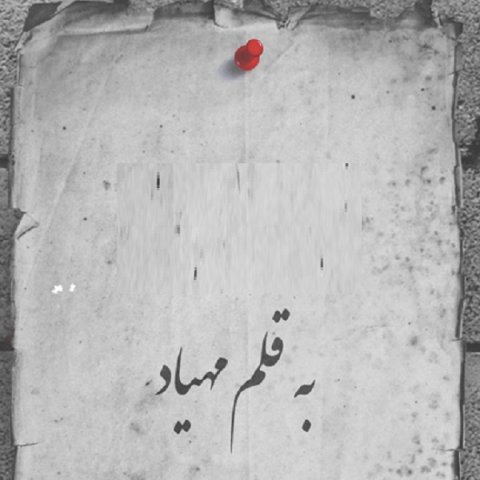 به قلم مهیاد